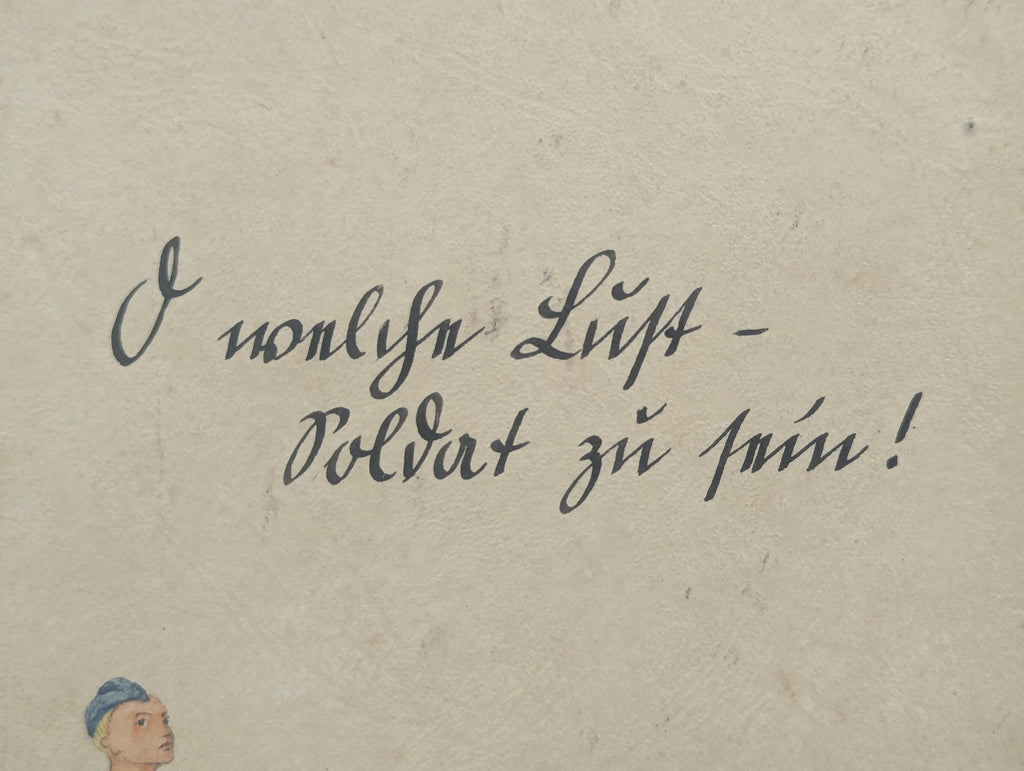 O welche Lust -
Soldat zu sein!